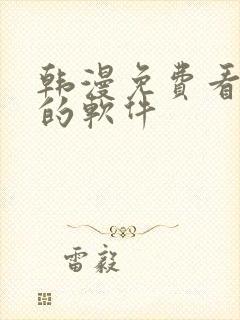 韩漫免费看
的软件
雷毅